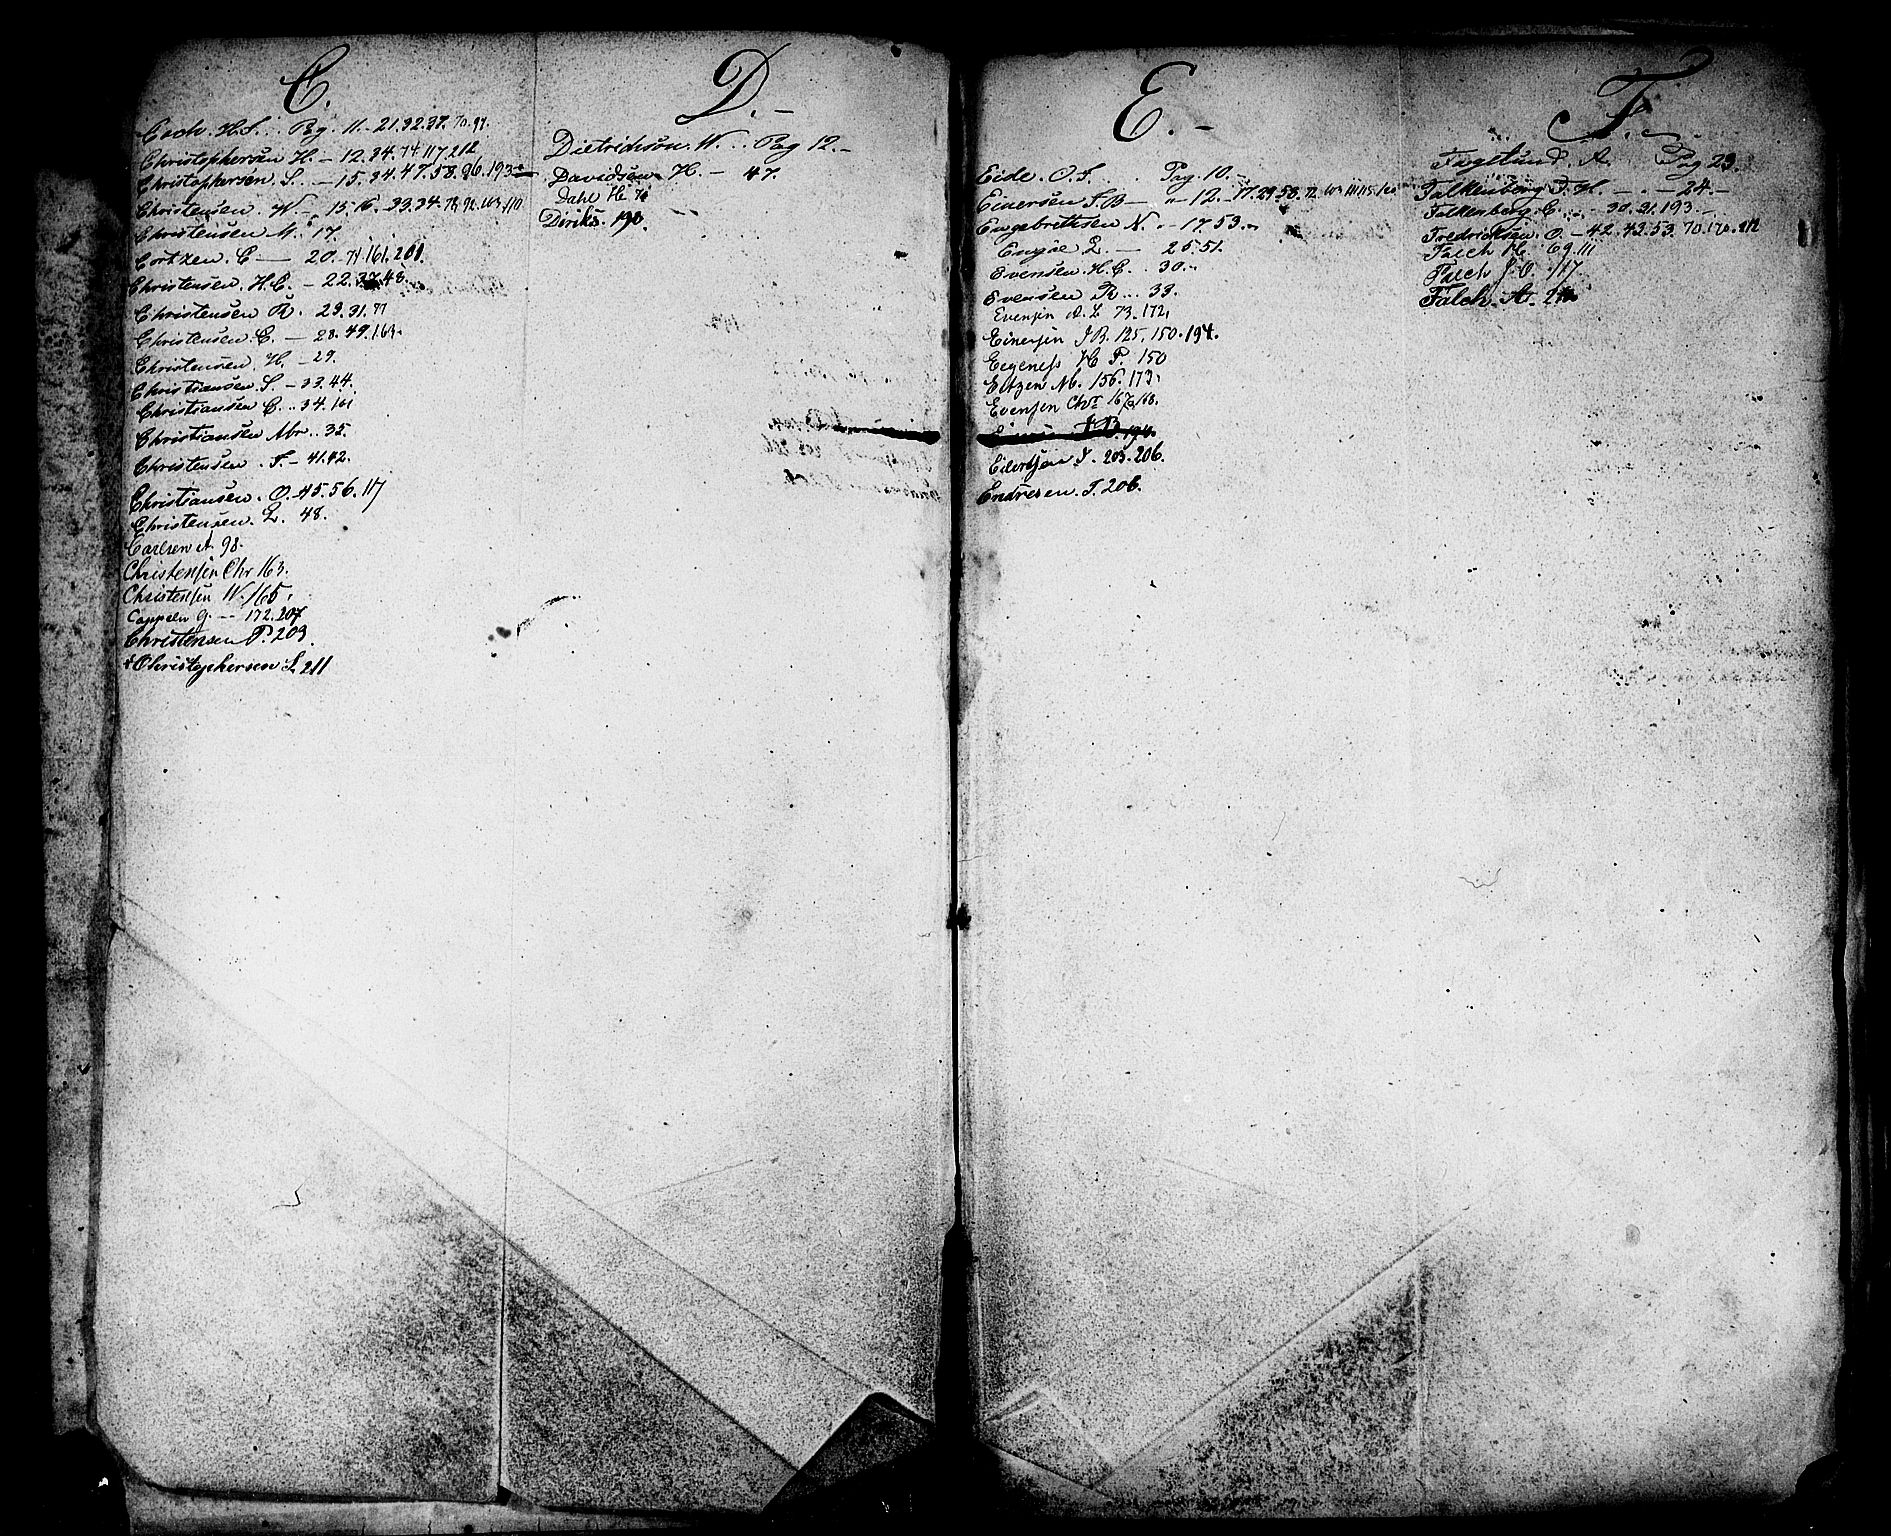 C.
H. S. Pag. 11.-21.32.37.70.97.
Christophersen H. - 12.34.74.117.212
Christophersen. S. - 15.34.47.58.96.193
Christensen. W - 15.16.33.34.78.96.163.170
Christensen M. 17.
Cortzen C — 20.74.161.201.
Christensen. H.C. - 22.37.48.
Christensen R. - 23.31.77
Christensen C. - 28.49.163.
Christensen. H. - 29.
Christiansen. S. - 33.44.
Christiansen C. .. 34.161
Christiansen Mr. .. 35.
Christensen. F. - 41.42.
Christiansen. O. - 45.56.117
Christensen. L. 48.
Carlsen A 98.
Christensen Chr 163.
Christensen W. 165.
Cappelen G. -- 172.207
Christensen P. 203.
Christophersen S. 211
D.-
Dietrichson. W... Pag 12.-
Davidsen H. - 47.
Dahl H. 71
Diriks. 190.
E.-
Eide. O. S. Pag. 10.-
Einersen J.B - " - 12.-17.29.58.72.103.111.115.120
Engebrethsen N. - 17.53.-
Engøe L. — 25.51.
Evensen. H.C. 30.-
Evensen R... 33.
Evensen A.L 73.172.
Einersen J B. 125.150.194.
Eegeness H P. 150
Eitzen M. 156.173.
Evensen Chr 167.168.
J B. 194.
Eilertsen J. 203.206.
Endresen. T. 206.
F.-
Fagelund. A. Pag 23.
Falkenberg F. H. - . - 24.-
Falkenberg. C. .. - 30.31.193.-
Fredricksen. O. - 42.43.53.70.170.212
Falch H. 69.111
Falch J.O. 117.
Falch. A.